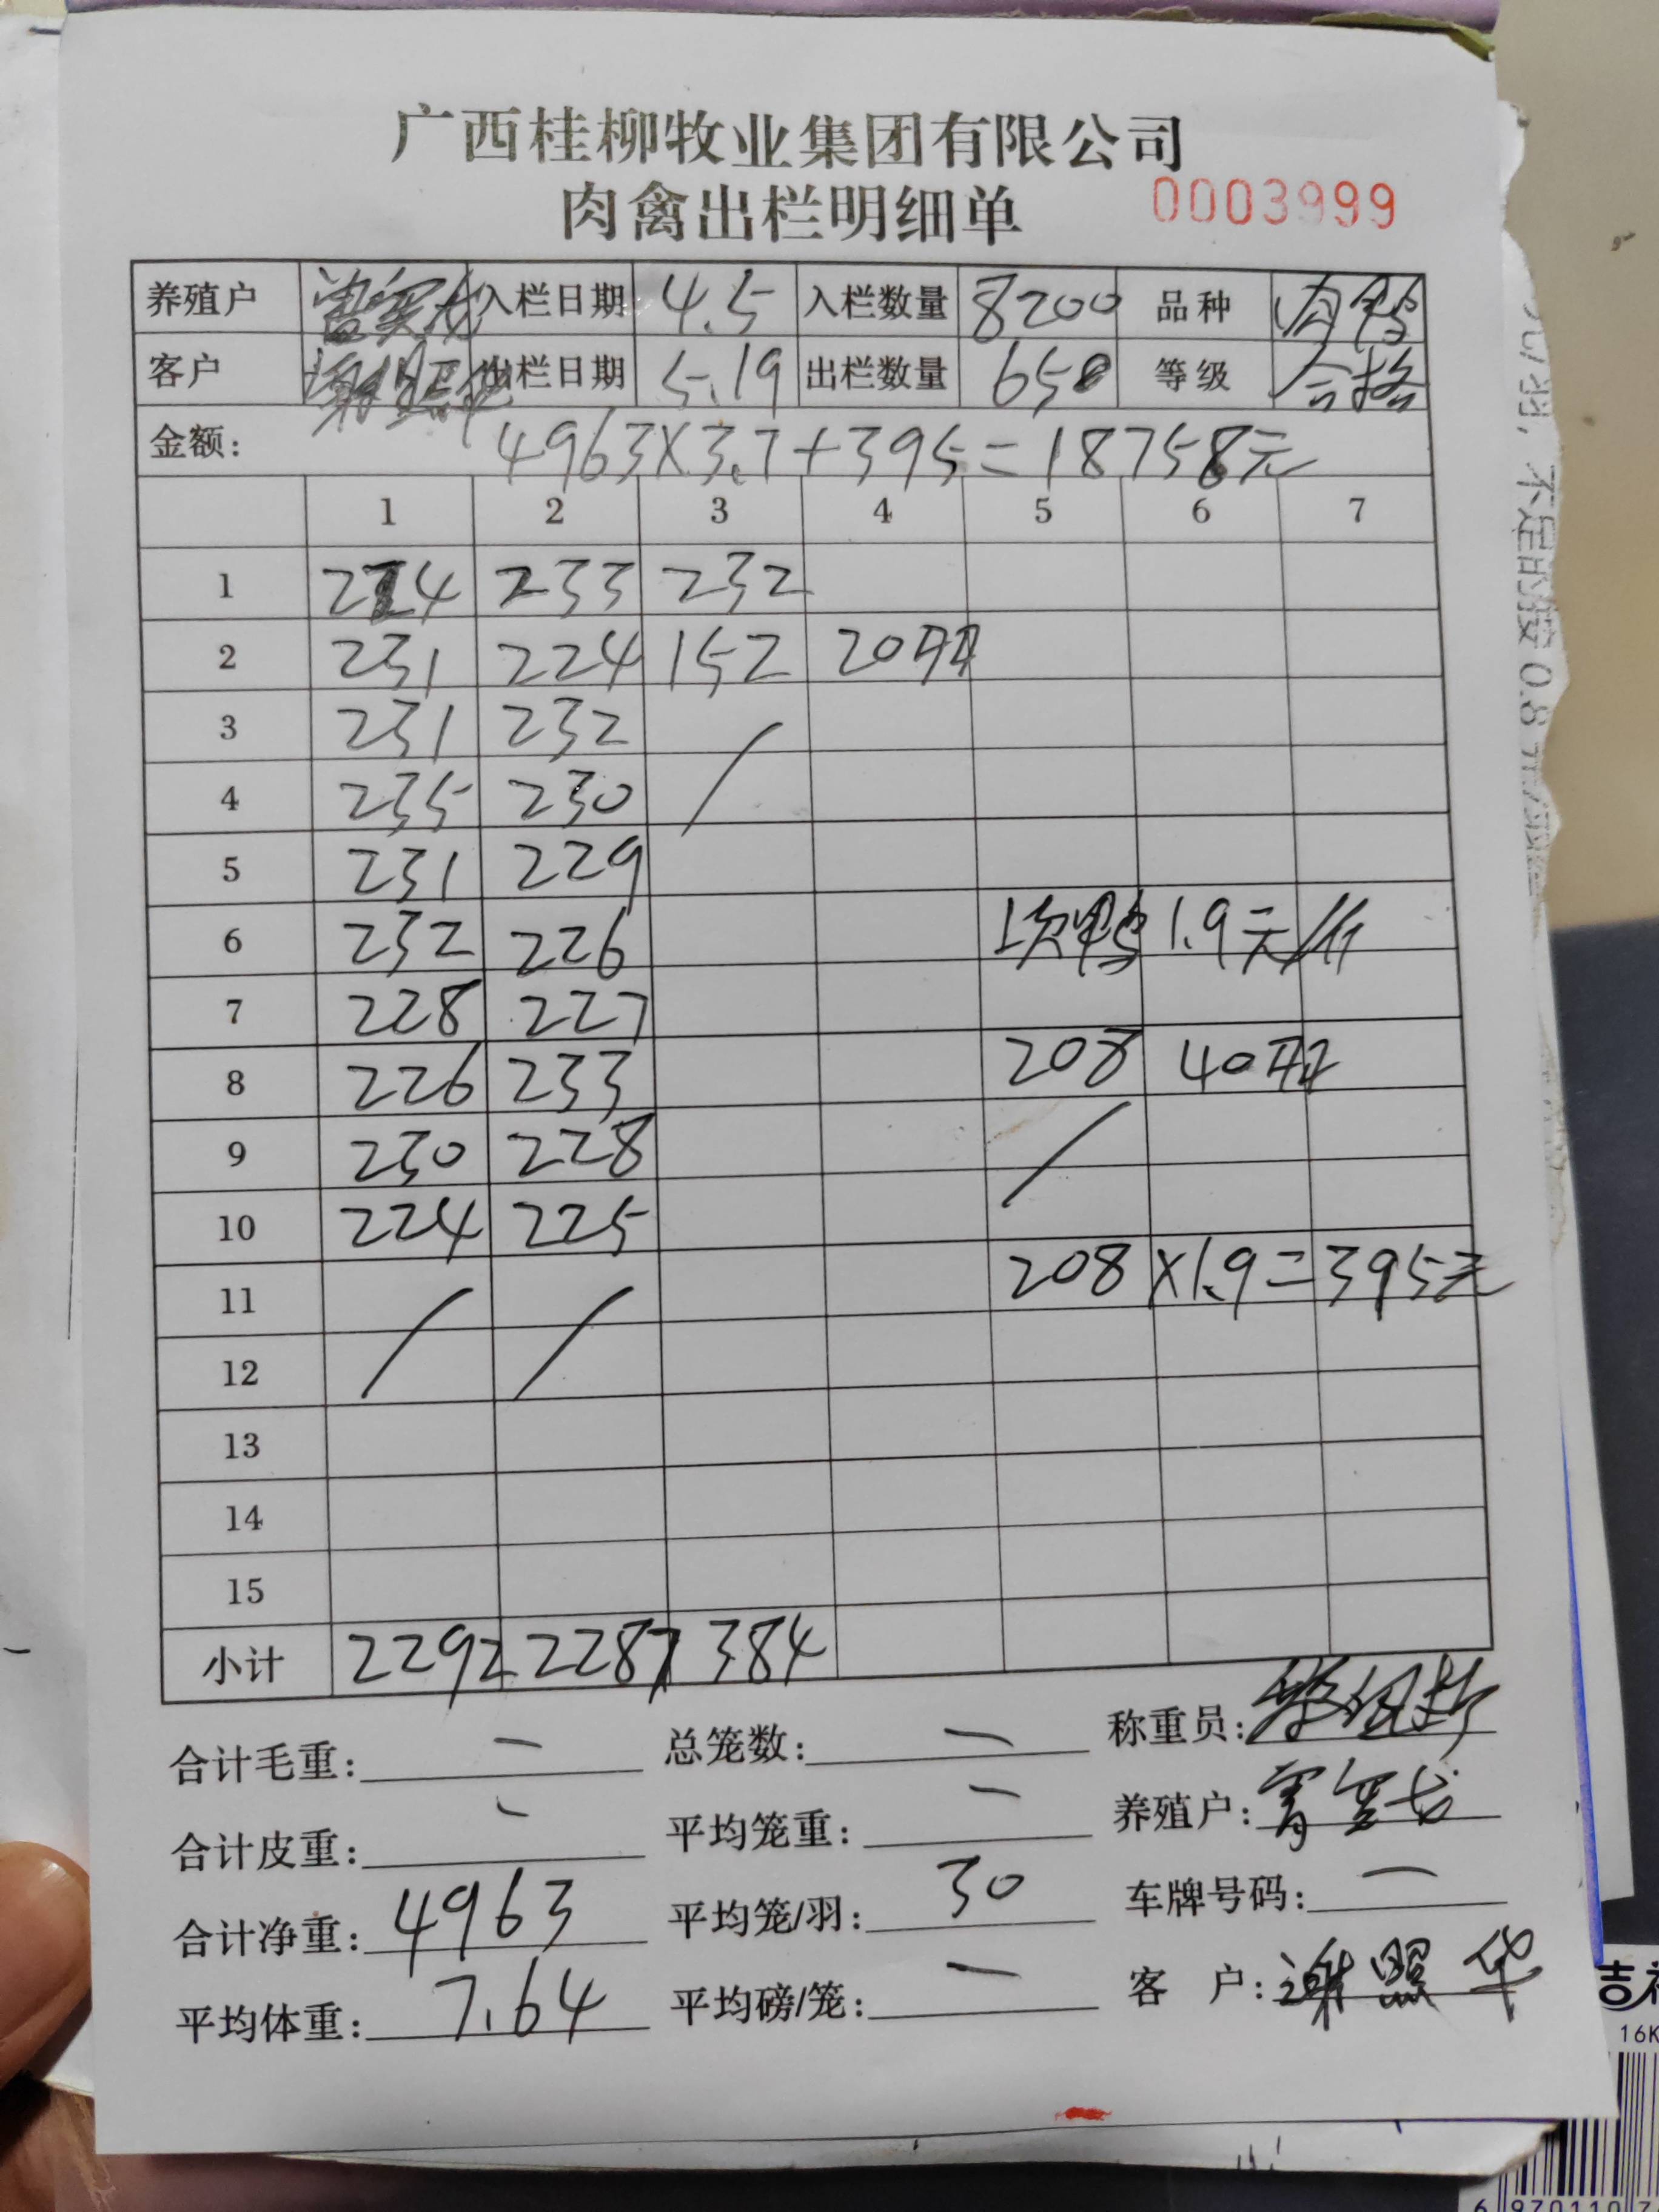 广西桂柳牧业集团有限公司
肉禽出栏明细单 0003999
养殖户 入栏日期 4.5 入栏数量 8200 品种 肉鸭
客户 谢照华 出栏日期 5.19 出栏数量 650 等级 合格
金额: 4963×3.7+395=18758元
1 2 3 4 5 6 7
1 224 233 232
2 231 224 152 20只
3 231 232 /
4 235 230
5 231 229
6 232 226 次鸭 1.9元/斤
7 228 227
8 226 233 208 40只
9 230 228 /
10 224 225
11 / / 208×1.9=395元
12
13
14
15
小计 2292 2287 384
合计毛重: — 总笼数: — 称重员:
合计皮重: — 平均笼重: — 养殖户:
合计净重: 4963 平均笼/羽: 30 车牌号码: —
平均体重: 7.64 平均磅/笼: — 客户: 谢照华
16K
6 970110